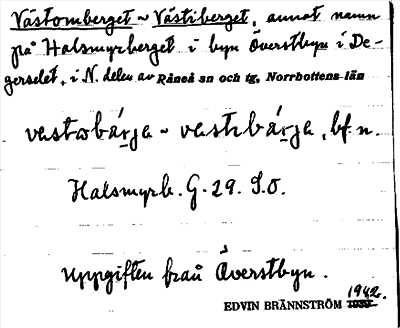 Västomberget ~ Västiberget, annat namn
på Halsmyrberget i byn Överstbyn i De-
gerselet, i N. delen av Råneå sn och tg, Norrbottens län
vastωbárja ~ vastıbárja, bf. n.
Halsmyrb. G. 29. S.O.
Uppgiften från Överstbyn.
EDVIN BRÄNNSTRÖM 1942.